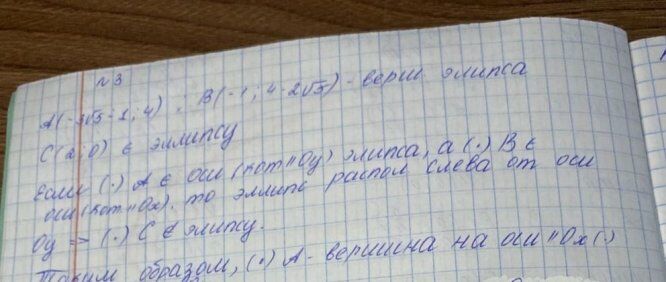 №3
A(-3√5-1; 4) ; B(-1; 4-2√5) - верш элипса
C(2; 0) ∈ эллипсу
Если (·) A ∈ оси (кот ∥ Oy) элипса, а (·) B ∈
оси (кот ∥ Ox), то эллипс распол слева от оси
Oy => (·) C ∉ элипсу.
Таким образом, (·) A - вершина на оси ∥ Ox (·)